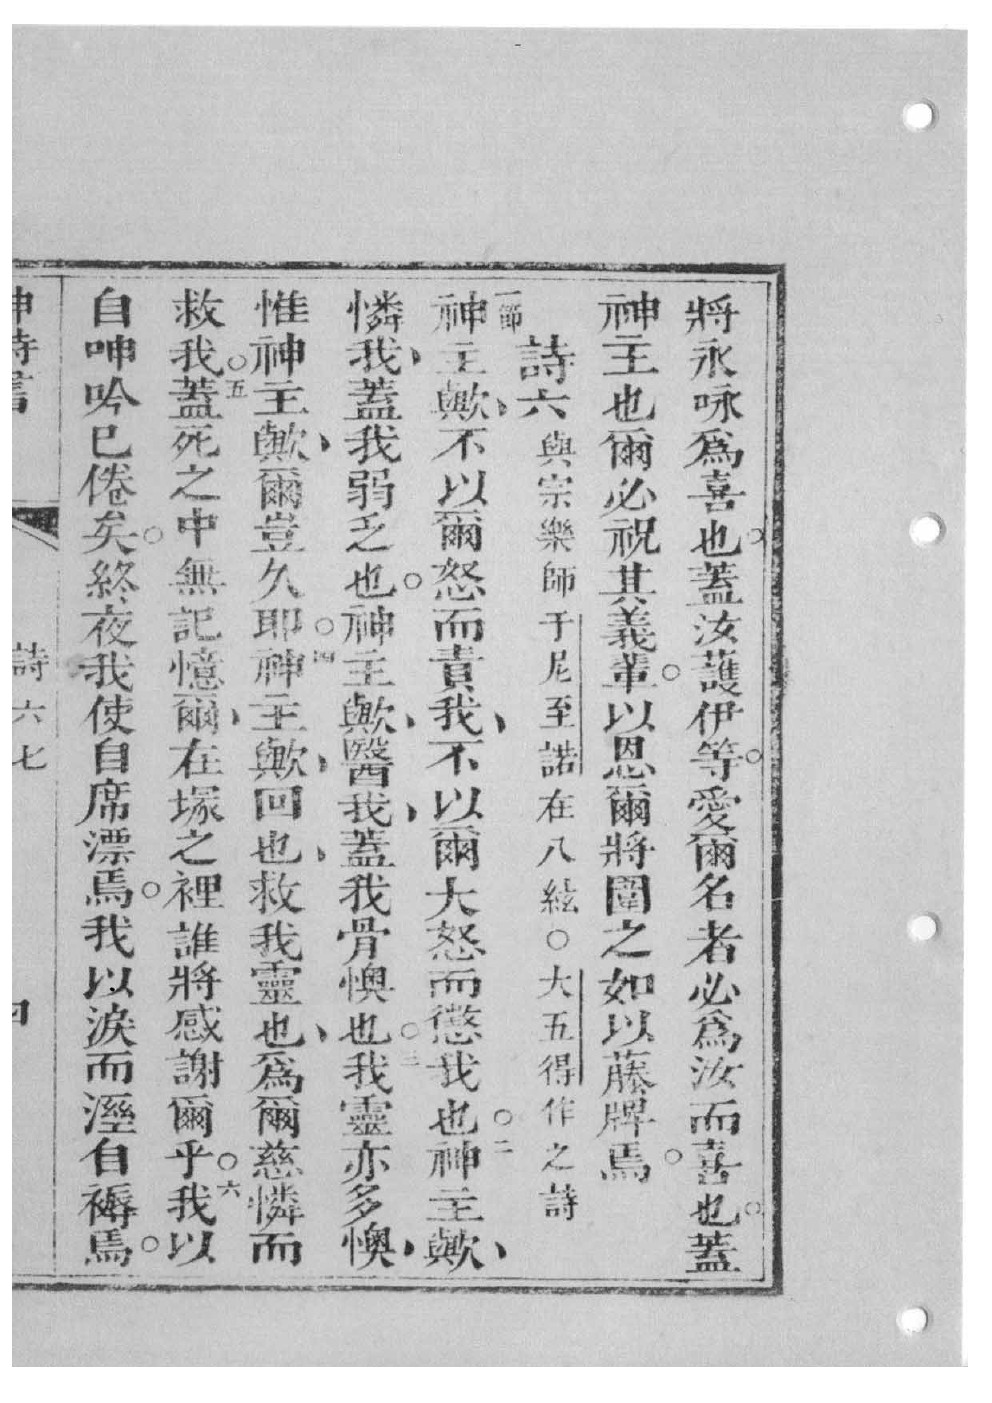 將永咏爲喜也。蓋汝護伊等。愛爾名者必爲汝而喜也。蓋
神主也爾必祝其義輩。以恩爾將圍之如以藤牌焉。
詩六 與宗樂師于尼至諾在八絃○大五得作之詩
一節 神主歟、不以爾怒而責我、不以爾大怒而懲我也。二 神主歟、
憐我、蓋我弱乏也。神主歟、醫我、蓋我骨懊也。三 我靈亦多懊、
惟神主歟、爾豈久耶。四 神主歟、回也、救我靈也、爲爾慈憐而
救我。五 蓋死之中無記憶爾、在塚之裡誰將感謝爾乎。六 我以
自呻吟已倦矣。終夜我使自席漂焉。我以淚而溼自褥焉。
神詩書 詩六七 四